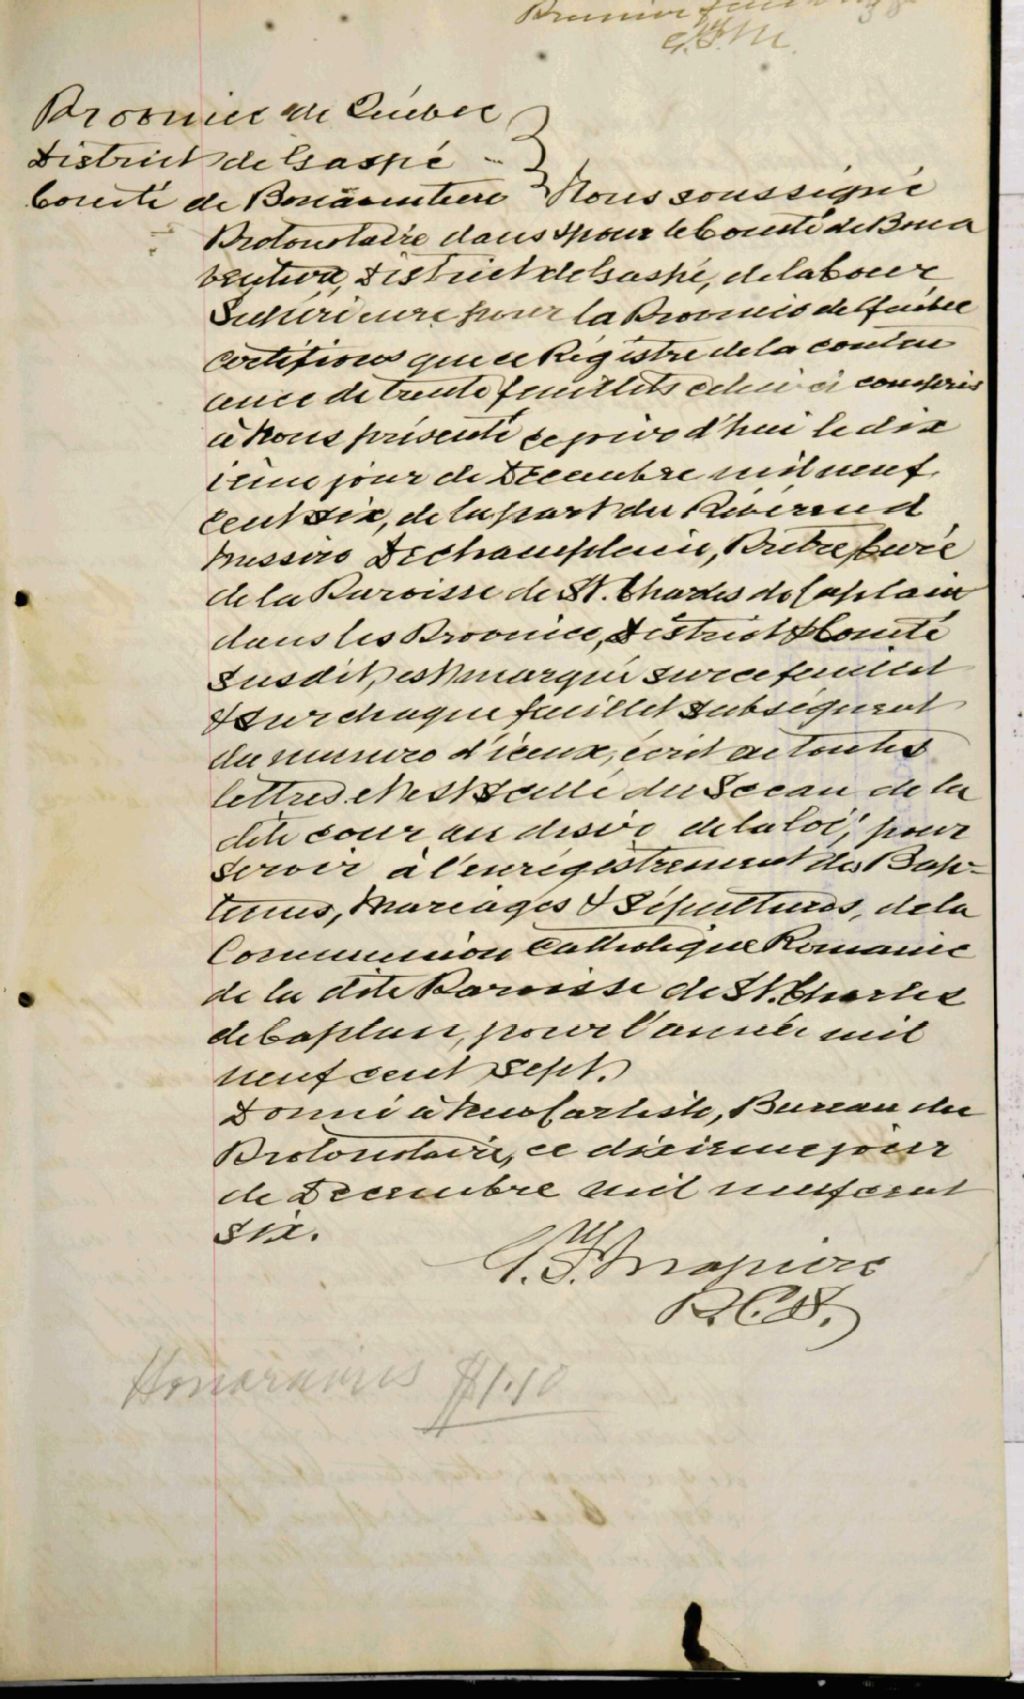 Premier feuillet
Province de Québec
District de Gaspé
Comté de Bonaventure } Nous soussigné
Protonotaire dans & pour le Comté de Bona
venture, District de Gaspé, de la Cour
Supérieure pour la Province de Québec
certifions que ce Régistre de la conten
ance de trente feuillets celui ci compris
à Nous présenté ce jour d'hui le dix
ième jour de Décembre mil neuf
cent six, de la part du Révérend
Messire Dechamplain, Prêtre, Curé
de la Paroisse de St. Charles de Caplain
dans les Province, District & Comté
susdit, est marqué sur ce feuillet
& sur chaque feuillet subséquent
du numéro d'iceux, écrit en toutes
lettres et est scellé du Sceau de la
dite cour au desir de la loi, pour
servir à l'enrégistrement des Bap-
temes, Mariages & Sépultures, de la
Communion Catholique Romaine
de la dite Paroisse de St. Charles
de Caplan, pour l'année mil
neuf cent sept.
Donné à New Carlisle, Bureau du
Protonotaire, ce dixième jour
de Décembre mil neuf cent
six.
P.C.S.
Honoraires $1.10